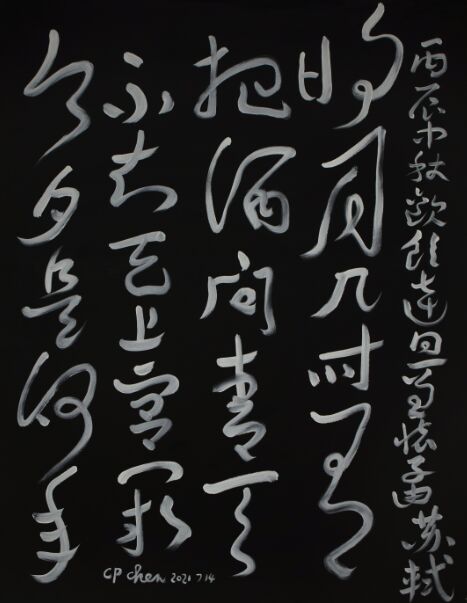 丙辰中秋歡飲達旦兼懷子由 蘇軾
明月几时有
把酒问青天
不知天上宫阙
今夕是何年
CP chen 2021 7 14